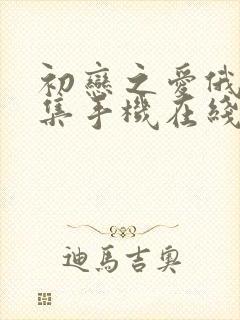 初戀之愛俄
集手機在綫
迪馬吉奧